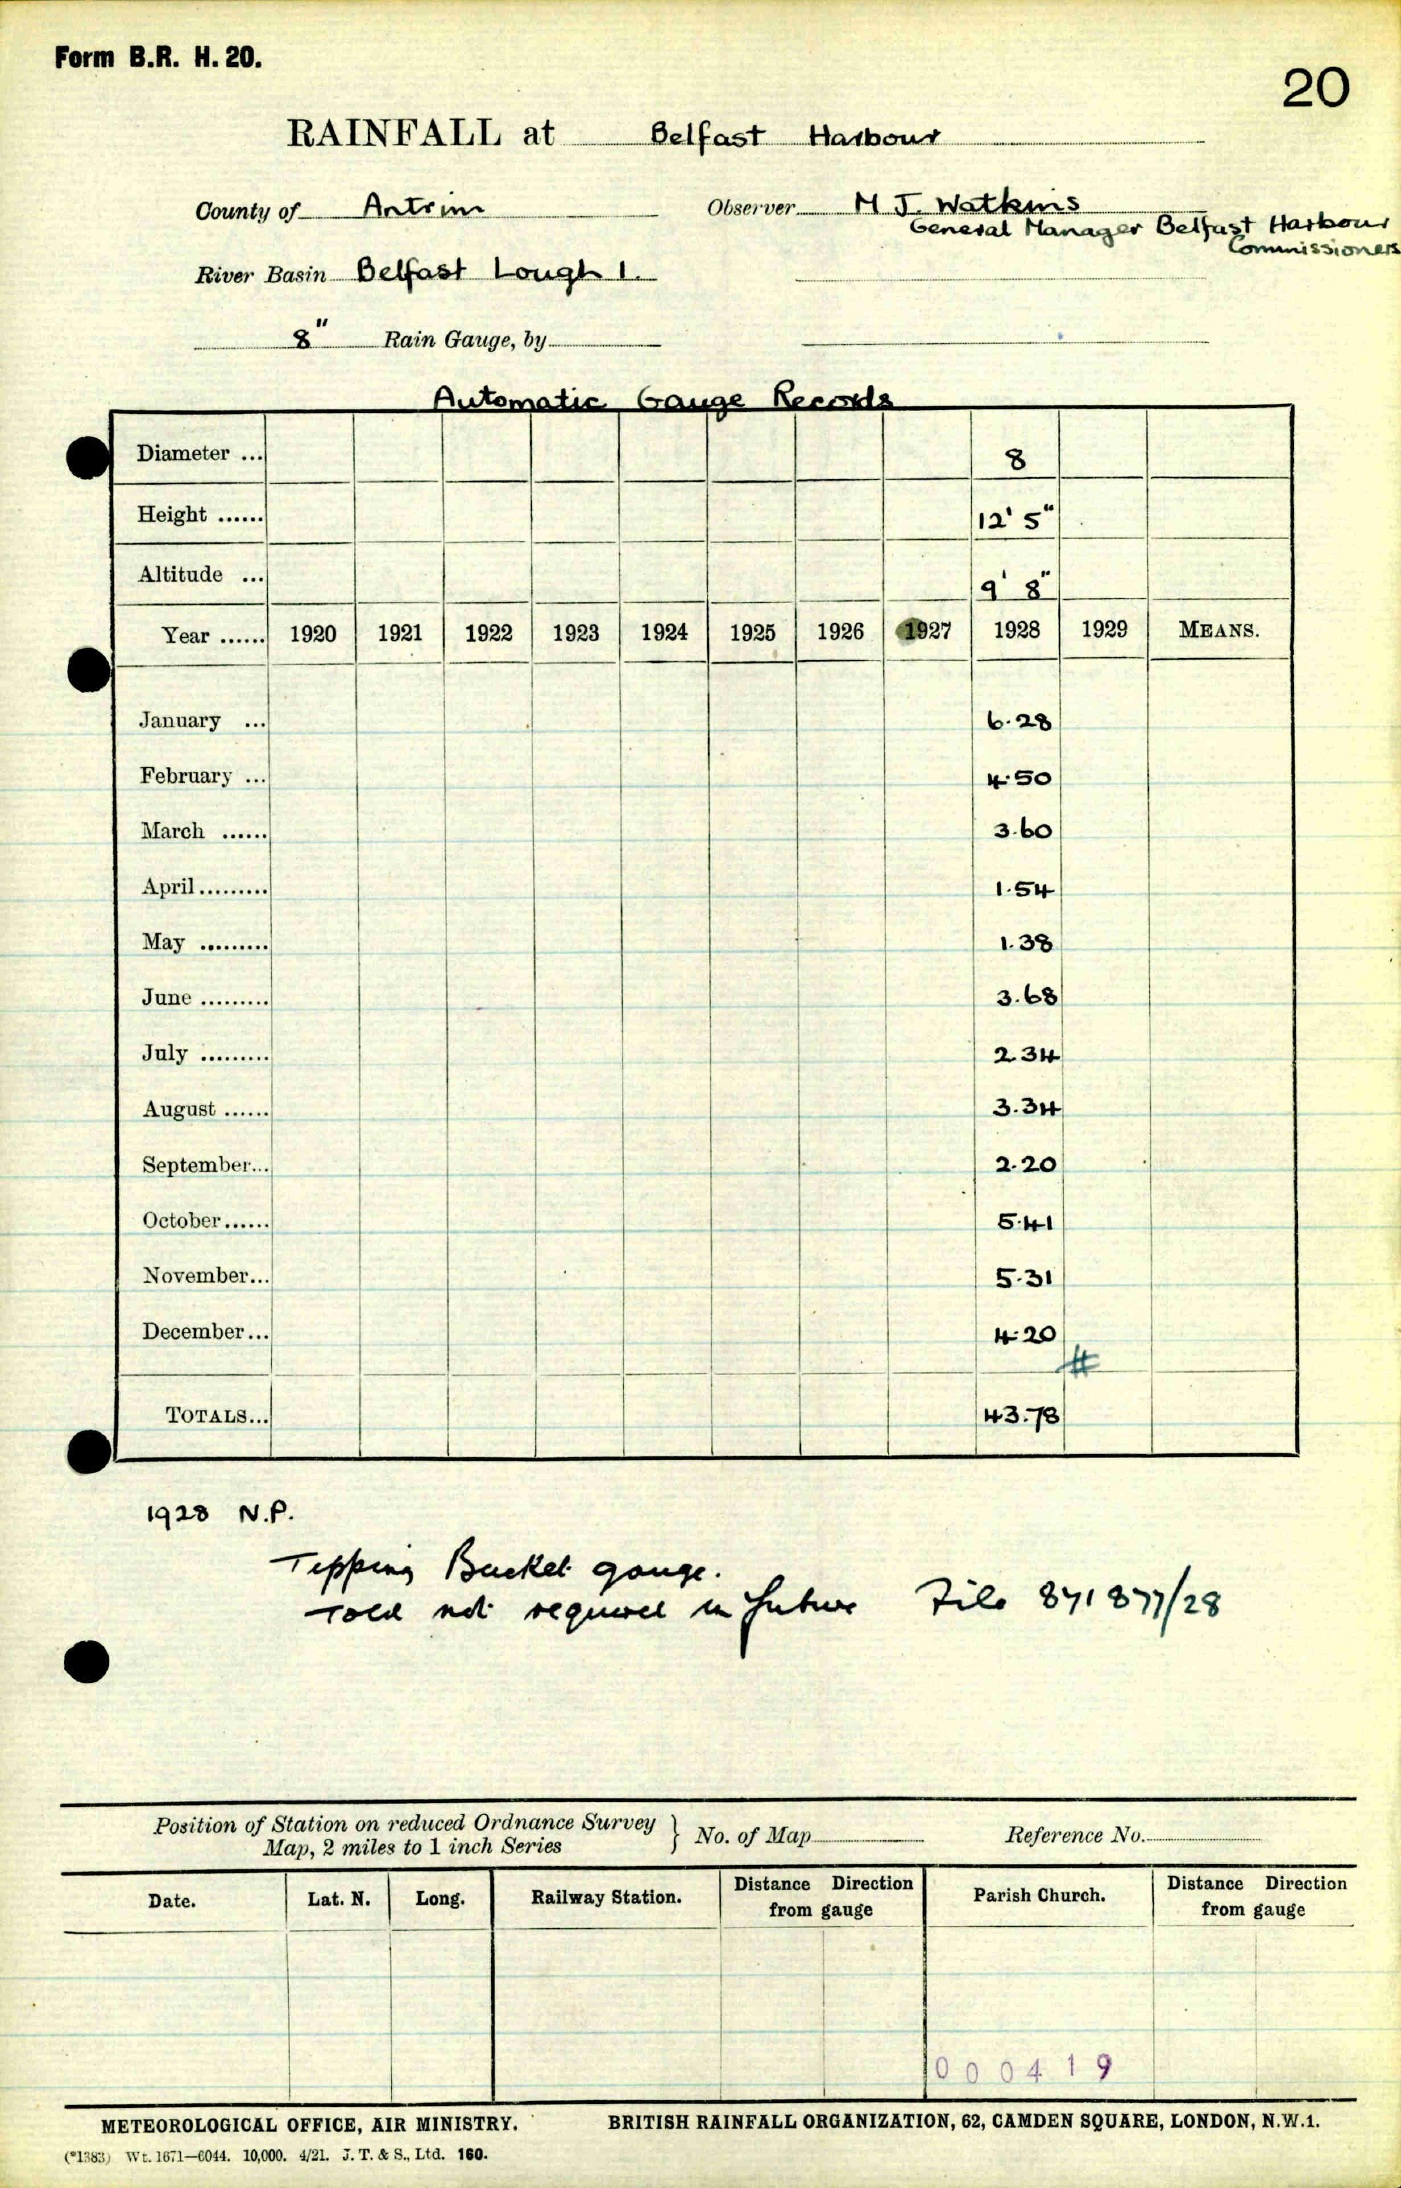 Form B.R. H. 20.
20
RAINFALL at Belfast Harbour
County of Antrim Observer M J. Watkins
General Manager Belfast Harbour
Commissioners
River Basin Belfast Lough 1.
8" Rain Gauge, by
Automatic Gauge Records
Diameter ... 8
Height ...... 12' 5"
Altitude ... 9' 8"
Year ...... 1920 1921 1922 1923 1924 1925 1926 1927 1928 1929 MEANS.
January ... 6.28
February ... 4.50
March ...... 3.60
April ......... 1.54
May ......... 1.38
June ......... 3.68
July ......... 2.34
August ...... 3.34
September... 2.20
October...... 5.41
November... 5.31
December... 4.20
#
TOTALS... 43.78
1928 N.P.
Tipping Bucket gauge.
Told not required in future File 871877/28
Position of Station on reduced Ordnance Survey } No. of Map Reference No.
Map, 2 miles to 1 inch Series
Date. Lat. N. Long. Railway Station. Distance Direction from gauge Parish Church. Distance Direction from gauge
000419
METEOROLOGICAL OFFICE, AIR MINISTRY. BRITISH RAINFALL ORGANIZATION, 62, CAMDEN SQUARE, LONDON, N.W.1.
(*1383) Wt. 1671—6044. 10,000. 4/21. J. T. & S., Ltd. 160.